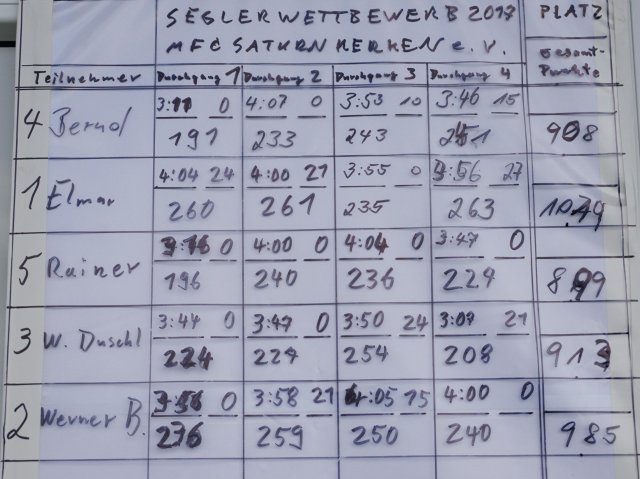 SEGLERWETTBEWERB 2017 PLATZ
MFC SATURN KERKEN e. V. Gesamt-
Teilnehmer Durchgang 1 Durchgang 2 Durchgang 3 Durchgang 4 Punkte
3:11 0 4:07 0 3:53 10 3:46 15
4 Bernd 191 233 243 241 908
4:04 24 4:00 21 3:55 0 3:56 27
1 Elmar 260 261 235 263 1019
3:16 0 4:00 0 4:04 0 3:47 0
5 Rainer 196 240 236 227 899
3:44 0 3:47 0 3:50 24 3:07 21
3 W. Duschl 224 227 254 208 913
3:56 0 3:58 21 4:05 15 4:00 0
2 Werner B. 236 259 250 240 985